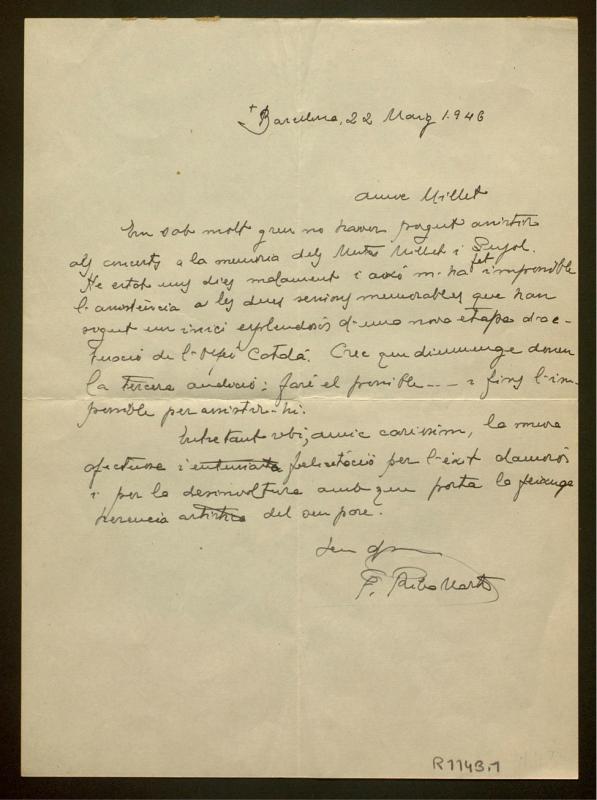 Barcelona, 22 Març 1946
amic Millet
Em sab molt greu no haver pogut assistir
als concerts a la memoria dels Mtres Millet i Pujol.
He estat uns dies malament i això m-ha fet impossible
l-assistència a les dues sessions memorables que han
sogut un inici esplendorós d-una nova etapa d-ac-
tuació de l-Orfeó Català. Crec que diumenge donen
la tercera audició; faré el possible --- i fins l-im-
possible per assistir-hi.
Entretant rebi, amic caríssim, la meva
afectuosa i entusiasta felicitació per l-èxit clamorós
i per la desenvoltura amb que porta la feixuga
herencia artística del seu pare.
F. Pujol Martí
R1143,1